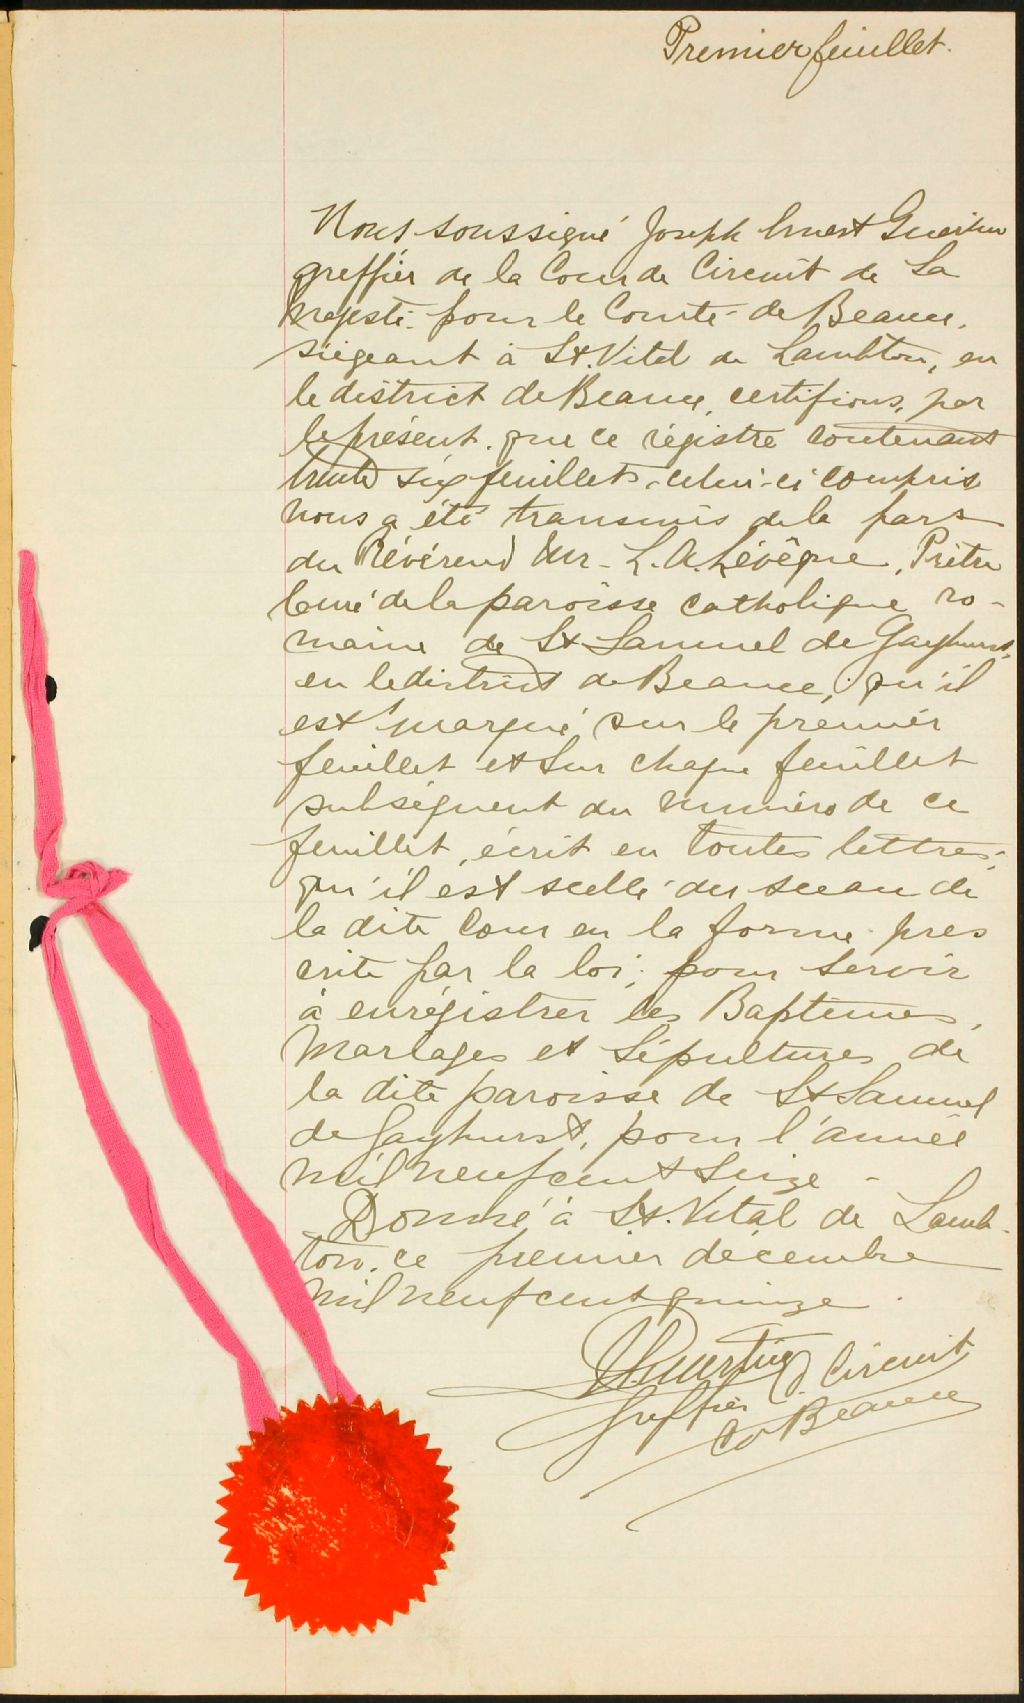 Premier feuillet.
Nous soussigné Joseph Ernest Guertin
greffier de la Cour de Circuit de Sa
Majesté pour le Comté de Beauce,
siégeant à St. Vital de Lambton, en
le district de Beauce, certifions, par
le présent, que ce régistre contenant
trente six feuillets, celui-ci compris
nous a été transmis de la part
du Révérend Mr. L. A. Lévêque, Prêtre
Curé de la paroisse catholique ro-
maine de St Samuel de Gayhurst,
en le district de Beauce, qu'il
est marqué sur le premier
feuillet et sur chaque feuillet
subséquent du numéro de ce
feuillet, écrit en toutes lettres,
qu'il est scellé du sceau de
la dite Cour en la forme pres
crite par la loi, pour servir
à enrégistrer les Baptêmes,
Mariages et Sépultures de
la dite paroisse de St Samuel
de Gayhurst, pour l'année
mil neuf cent seize -
Donné à St. Vital de Lamb-
ton, ce premier décembre
mil neuf cent quinze.
Guertin
Greffier C. Circuit
Co Beauce